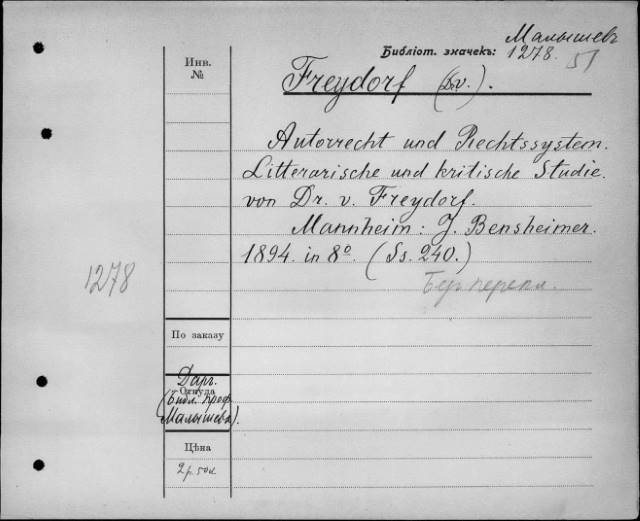 Малышевъ
Библіот. значекъ: 1278. 51
Инв.
№
Freydorf (D.v.).
Autorrecht und Rechtssystem.
Litterarische und kritische Studie
von Dr. v. Freydorf.
Mannheim: J. Bensheimer.
1894. in 8º. (Ss. 240.)
1278
Без перепл.
По заказу
Даръ.
Откуда
(Библ. проф.
Малышева).
Цѣна
2 р. 50 к